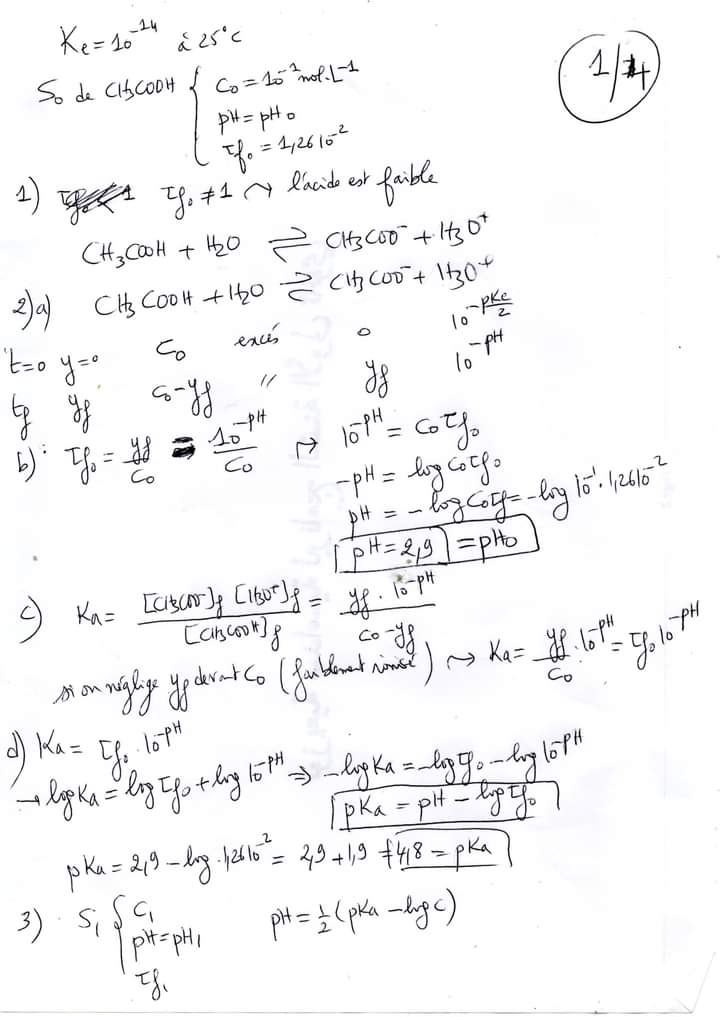 Ke = 10^-14 à 25°C
1/4
S₀ de CH3COOH { C₀ = 10^-1 mol.L^-1
pH = pH₀
τf₀ = 1,26 10^-2
1) τf₀ ≠ 1 ⤳ l'acide est faible
CH3COOH + H2O ⇌ CH3COO^- + H3O^+
2) a) CH3COOH + H2O ⇌ CH3COO^- + H3O^+
t=0 y=0 C₀ excés 0 10^(-pKe/2)
tf yf C₀-yf // yf 10^-pH
b) : τf₀ = yf/C₀ = 10^-pH/C₀ ↦ 10^-pH = C₀τf₀
-pH = log C₀τf₀
pH = - log C₀τf = - log 10^-1 . 1,26 10^-2
pH = 2,9 = pH₀
c) Ka = [CH3COO^-]f [H3O^+]f / [CH3COOH]f = yf . 10^-pH / C₀-yf
si on néglige yf devant C₀ (faiblement ionisé) ⤳ Ka = yf/C₀ . 10^-pH = τf₀ 10^-pH
d) Ka = τf₀ . 10^-pH
→ log Ka = log τf₀ + log 10^-pH ⇒ -log Ka = -log τf₀ - log 10^-pH
pKa = pH - log τf₀
pKa = 2,9 - log . 1,26 10^-2 = 2,9 + 1,9 = 4,8 = pKa
3) . S₁ { C₁ pH = 1/2 (pKa - log C)
pH = pH₁
τf₁